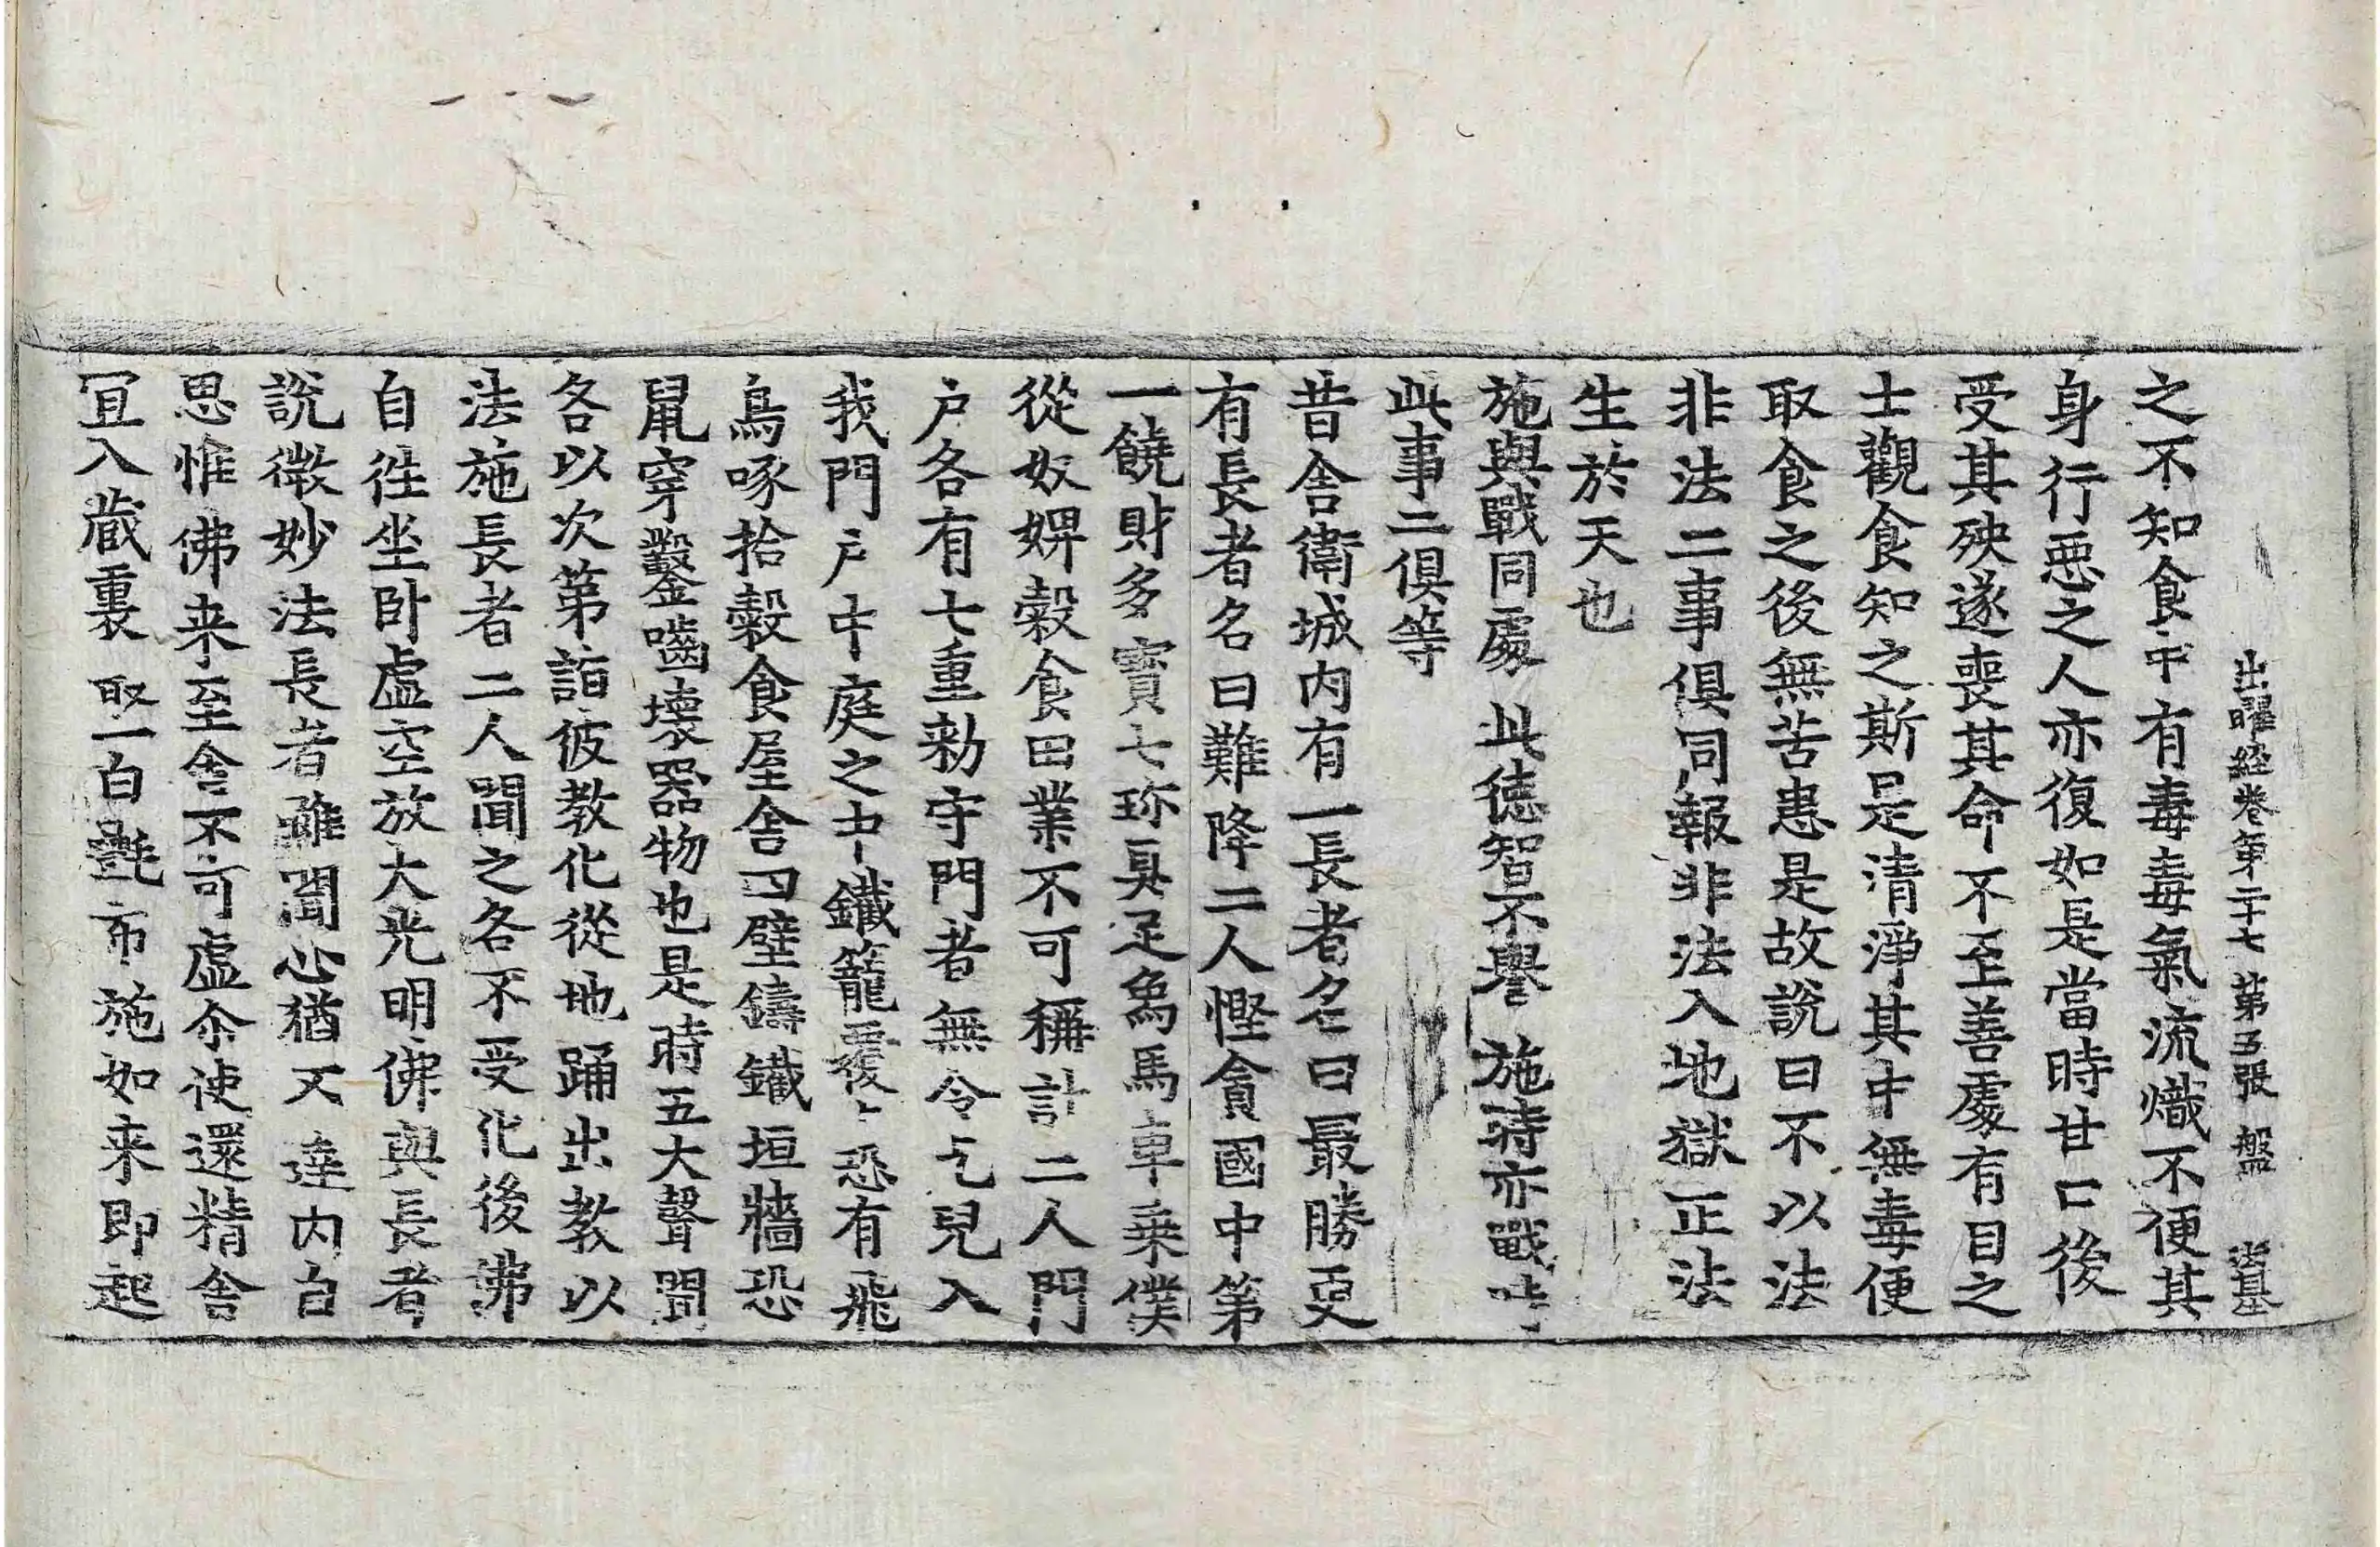 出曜經卷第二十七 第五張 盤
之不知食中有毒毒氣流熾不便其
身行惡之人亦復如是當時甘口後
受其殃遂喪其命不至善處有目之
士觀食知之斯是清淨其中無毒便
取食之後無苦患是故說曰不以法
非法二事俱同報非法入地獄正法
生於天也
施與戰同處 此徳智不譽 施時亦戰時
此事二俱等
昔舎衛城内有一長者名曰最勝更
有長者名曰難降二人慳貪國中第
一饒財多寶七珎具足象馬車乗僕
從奴婢穀食田業不可稱計二人門
戶各有七重勑守門者無令乞兒入
我門戶中庭之中鐵籠覆上恐有飛
鳥啄拾穀食屋舎四壁鑄鐵垣牆恐
鼠穿鑿嚙壊器物也是時五大聲聞
各以次第詣彼教化從地踊出教以
法施長者二人聞之各不受化後佛
自往坐卧虛空放大光明佛與長者
說微妙法長者雖聞心猶不達内自
思惟佛来至舎不可虛尒使還精舎
冝入蔵裏取一白㲲布施如来即起